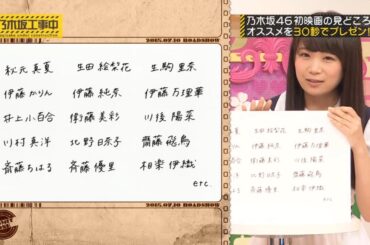 乃木坂工事中
2015.07.10 ROADSHOW
秋元真夏 生田絵梨花 生駒里奈
伊藤かりん 伊藤純奈 伊藤万理華
井上小百合 衛藤美彩 川後陽菜
川村真洋 北野日奈子 齋藤飛鳥
斉藤ちはる 斉藤優里 相楽伊織
etc.
2015.07.10 ROADSHOW
乃木坂46初映画の見どころ
オススメを30秒でプレゼン!
生田絵梨花 生駒里奈
伊藤純奈 伊藤万理華
衛藤美彩 川後陽菜
北野日奈子 齋藤飛鳥
斉藤優里 相楽伊織
etc.